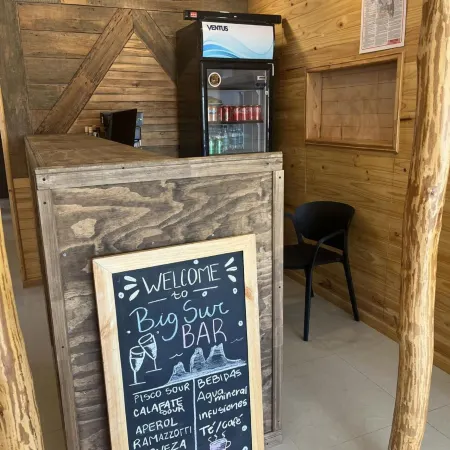 VENTUS
WELCOME
to
Big Sur
BAR
PISCO SOUR
CALAFATE SOUR
APEROL
RAMAZZOTTI
CERVEZA
BEBIDAS
Agua
mineral
infusiones
Té/café